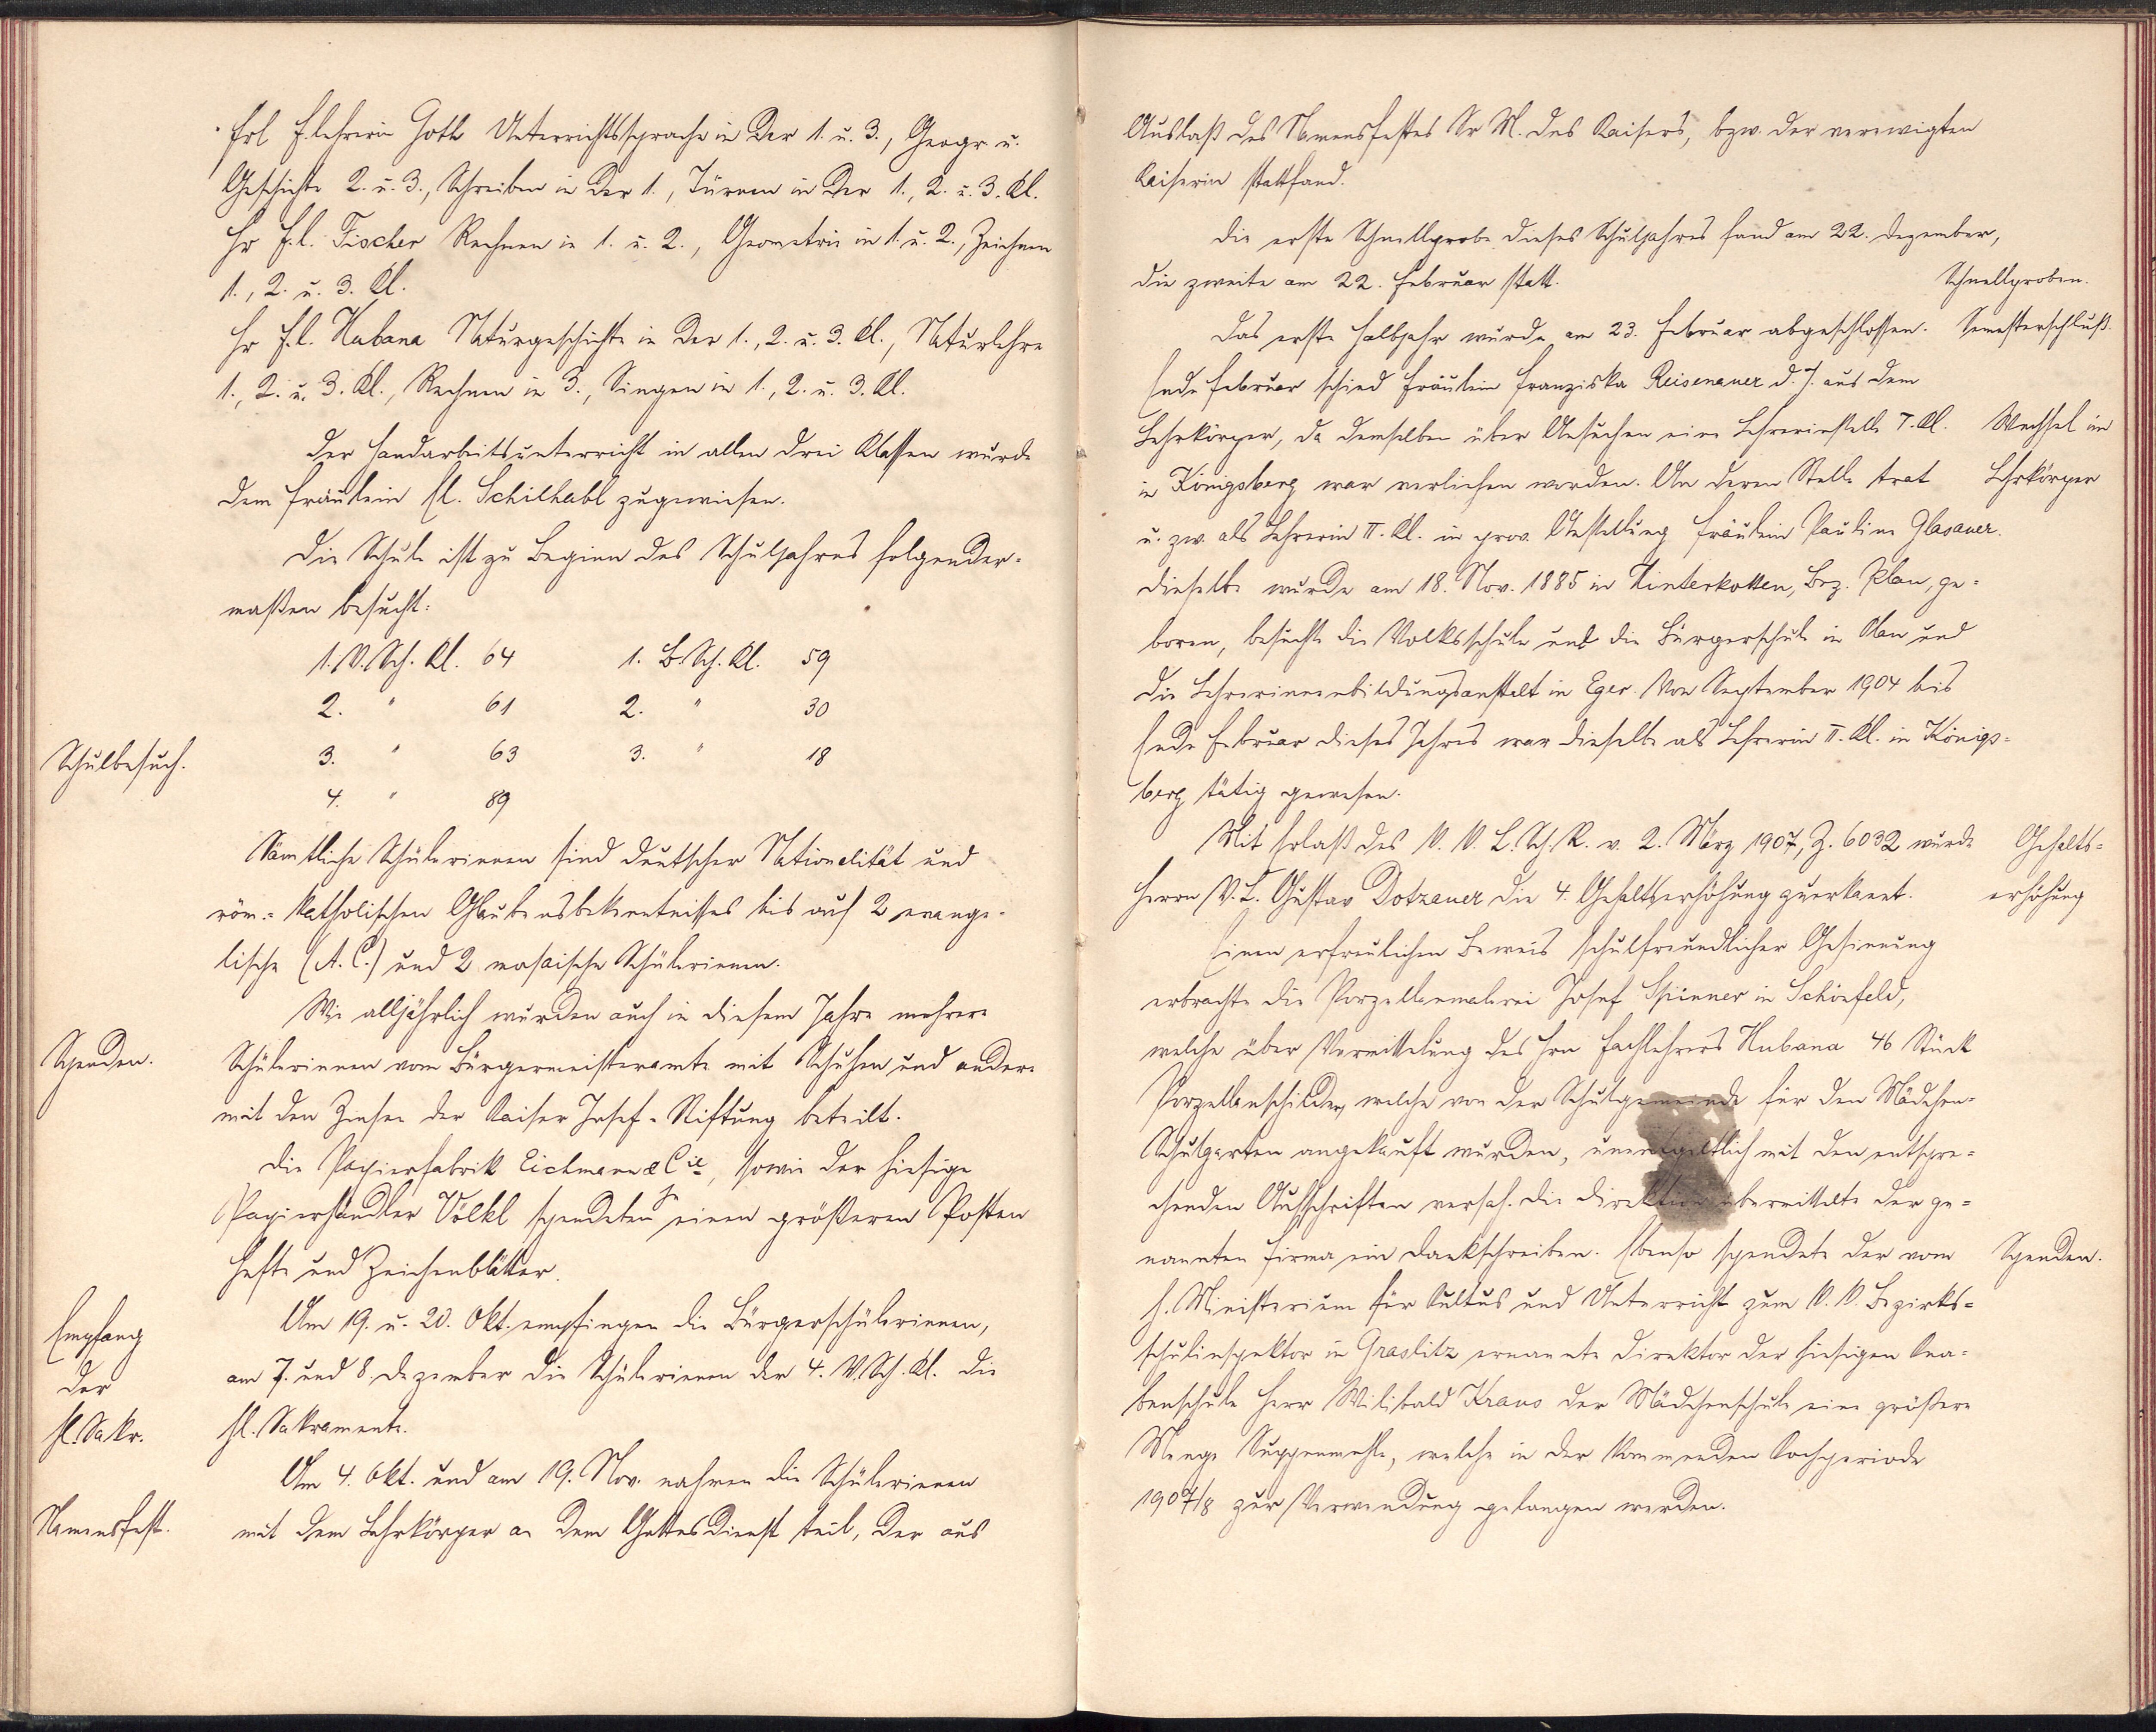 Frl F. lehrerin Goth Unterrichtssprache in der 1. u. 3., Geogr u.
Geschichte 2. u. 3., Schreiben in der 1., Turnen in der 1., 2. u. 3. Kl.
Hr F. l. Fischer Rechnen in 1. u. 2., Geometrie in 1. u. 2., Zeichnen
1., 2. u. 3. Kl.
Hr F. l. Hubana Naturgeschichte in der 1., 2. u. 3. Kl., Naturlehre
1., 2. u. 3. Kl., Rechnen in 3., Singen in 1., 2. u. 3. Kl.
Der Handarbeitsunterricht in allen drei Klassen wurde
dem Fräulein El. Schilhabl zugewiesen.
Die Schule ist zu Beginn des Schuljahres folgender=
maßen besucht:
1. V. Sch. Kl. 64 1. B. Sch. Kl. 59
2. " 61 2. " 30
Schulbesuch.
3. " 63 3. " 18
4. " 89
Sämtliche Schülerinnen sind deutscher Nationalität und
röm.= katholischen Glaubensbekenntnisses bis auf 2 evange=
lische (A. C.) und 2 mosaische Schülerinnen.
Wie alljährlich wurden auch in diesem Jahre mehrere
Spenden.
Schülerinnen vom Bürgermeisteramte mit Schuhen und andere
mit den Zinsen der Kaiser Josef-Stiftung beteilt.
Die Papierfabrik Eichmann & Cie, sowie der hiesige
Papierhändler Völkl spendeten je einen größeren Posten
Hefte und Zeichenblätter.
Empfang
der
hl. Sakr.
Am 19. u. 20. Okt. empfingen die Bürgerschülerinnen,
am 7. und 8. Dezember die Schülerinnen der 4. V. Sch. Kl. die
hl. Sakramente.
Am 4. Okt. und am 19. Nov. nahmen die Schülerinnen
Namensfest.
mit dem Lehrkörper an dem Gottesdienst teil, der aus
Auslaß des Namensfestes Sr M. des Kaisers, bzw. der verewigten
Kaiserin stattfand.
Die erste Schnellprobe dieses Schuljahres fand am 22. Dezember,
die zweite am 22. Februar statt.
Schnellproben.
Das erste Halbjahr wurde am 23. Februar abgeschlossen.
Semesterschluß.
Ende Februar schied Fräulein Franziska Reisenauer d. J. aus dem
Lehrkörper, da demselben über Ansuchen eine Lehrerinstelle I. Kl.
Wechsel im
in Königsberg war verliehen worden. An deren Stelle trat
Lehrkörper
u. zw. als Lehrerin II. Kl. in prov. Anstellung Fräulein Pauline Glasauer.
Dieselbe wurde am 18. Nov. 1885 in Hinterkotten, Bez. Plan, ge=
boren, besuchte die Volksschule und die Bürgerschule in Plan und
die Lehrerinnenbildungsanstalt in Eger. Von September 1904 bis
Ende Februar dieses Jahres war dieselbe als Lehrerin II. Kl. in Königs=
berg tätig gewesen.
Mit Erlaß des k. k. L. Sch. R. v. 2. März 1907, Z. 6032 wurde
Gehalts=
Herrn V. L. Gustav Dotzauer die 4. Gehaltserhöhung zuerkannt.
erhöhung
Einen erfreulichen Beweis schulfreundlicher Gesinnung
erbrachte die Porzellanmalerei Josef Spinner in Schönfeld,
welche über Vermittelung des Hrn Fachlehrers Hubana 46 Stück
Porzellanschilder, welche von der Schulgemeinde für den Mädchen=
Schulgarten angekauft wurden, unentgeltlich mit den entspre=
chenden Aufschriften versah. Die Direktion übermittelte der ge=
nannten Firma ein Dankschreiben. Ebenso spendete der vom
Spenden.
h. Ministerium für Kultus und Unterricht zum k. k. Bezirks=
schulinspektor in Graslitz ernannte Direktor der hiesigen Kna=
benschule Herr Wilibald Kraus der Mädchenschule eine größere
Menge Suppenmehle, welche in der kommenden Kochperiode
1907/8 zur Verwendung gelangen werden.